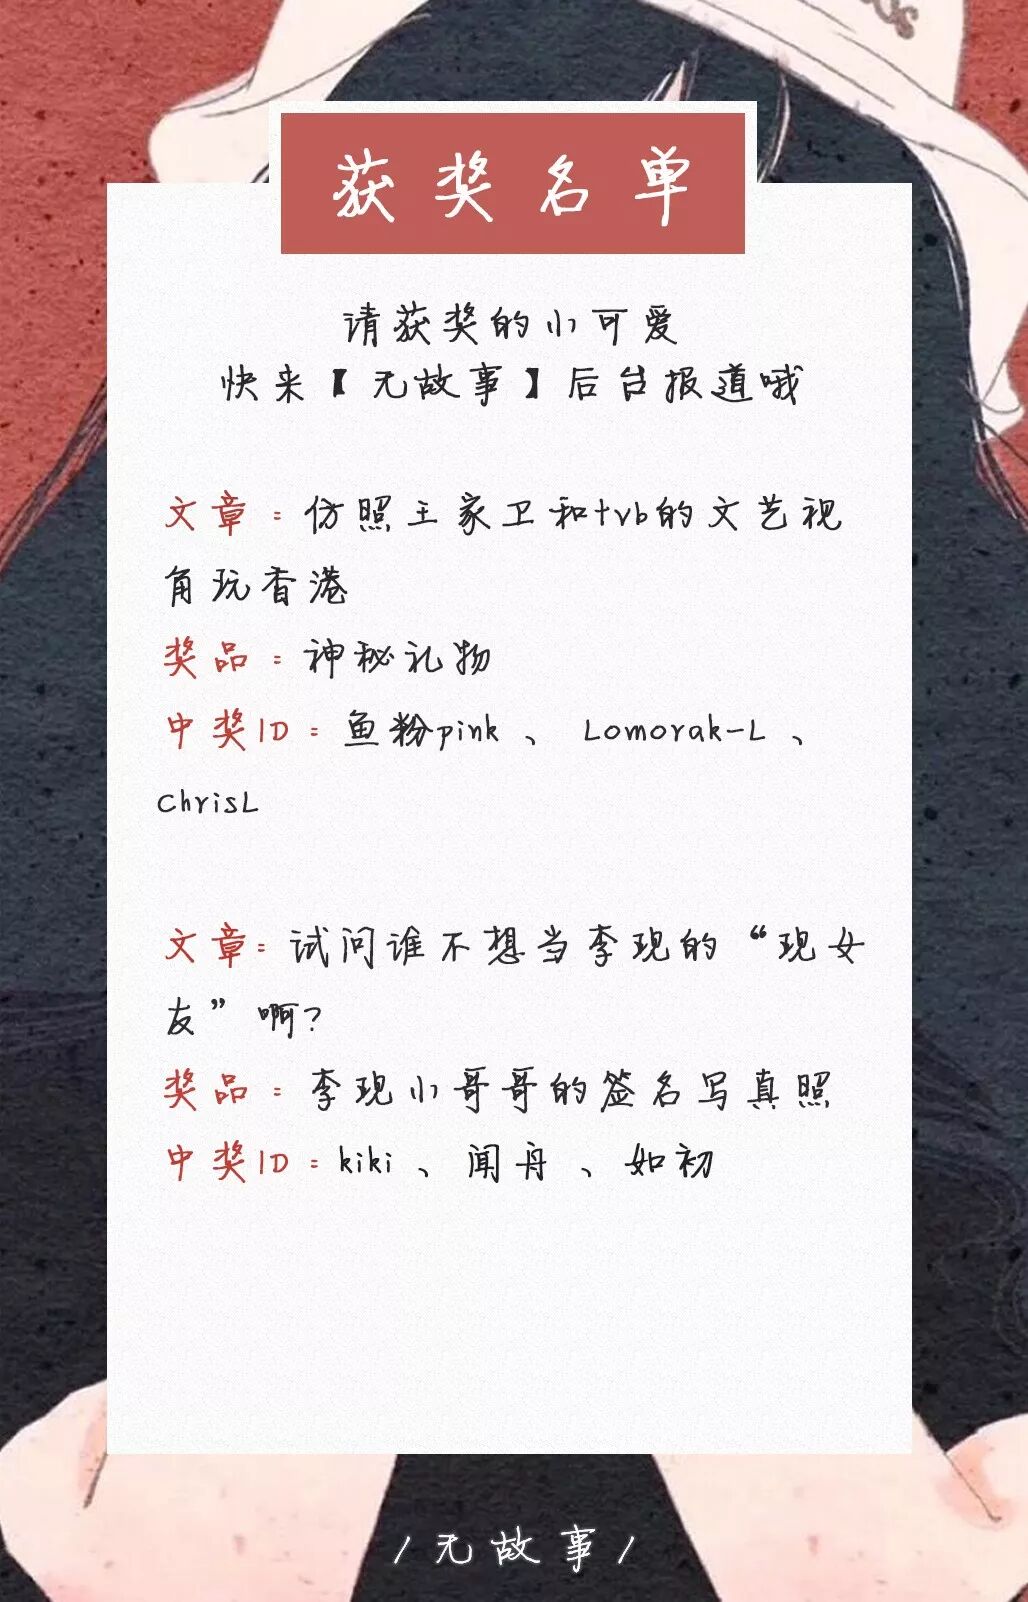 获奖名单
请获奖的小可爱
快来【无故事】后台报道哦
文章：仿照王家卫和tvb的文艺视
角玩香港
奖品：神秘礼物
中奖ID：鱼粉pink、Lomorak-L、
ChrisL
文章：试问谁不想当李现的“现女
友”啊？
奖品：李现小哥哥的签名写真照
中奖ID：kiki、闻舟、如初
/无故事/